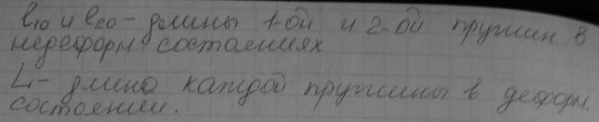 l₁₀ и l₂₀ - длины 1-ой и 2-ой пружин в
недеформ. состояниях
L - длина каждой пружины в деформ.
состоянии.